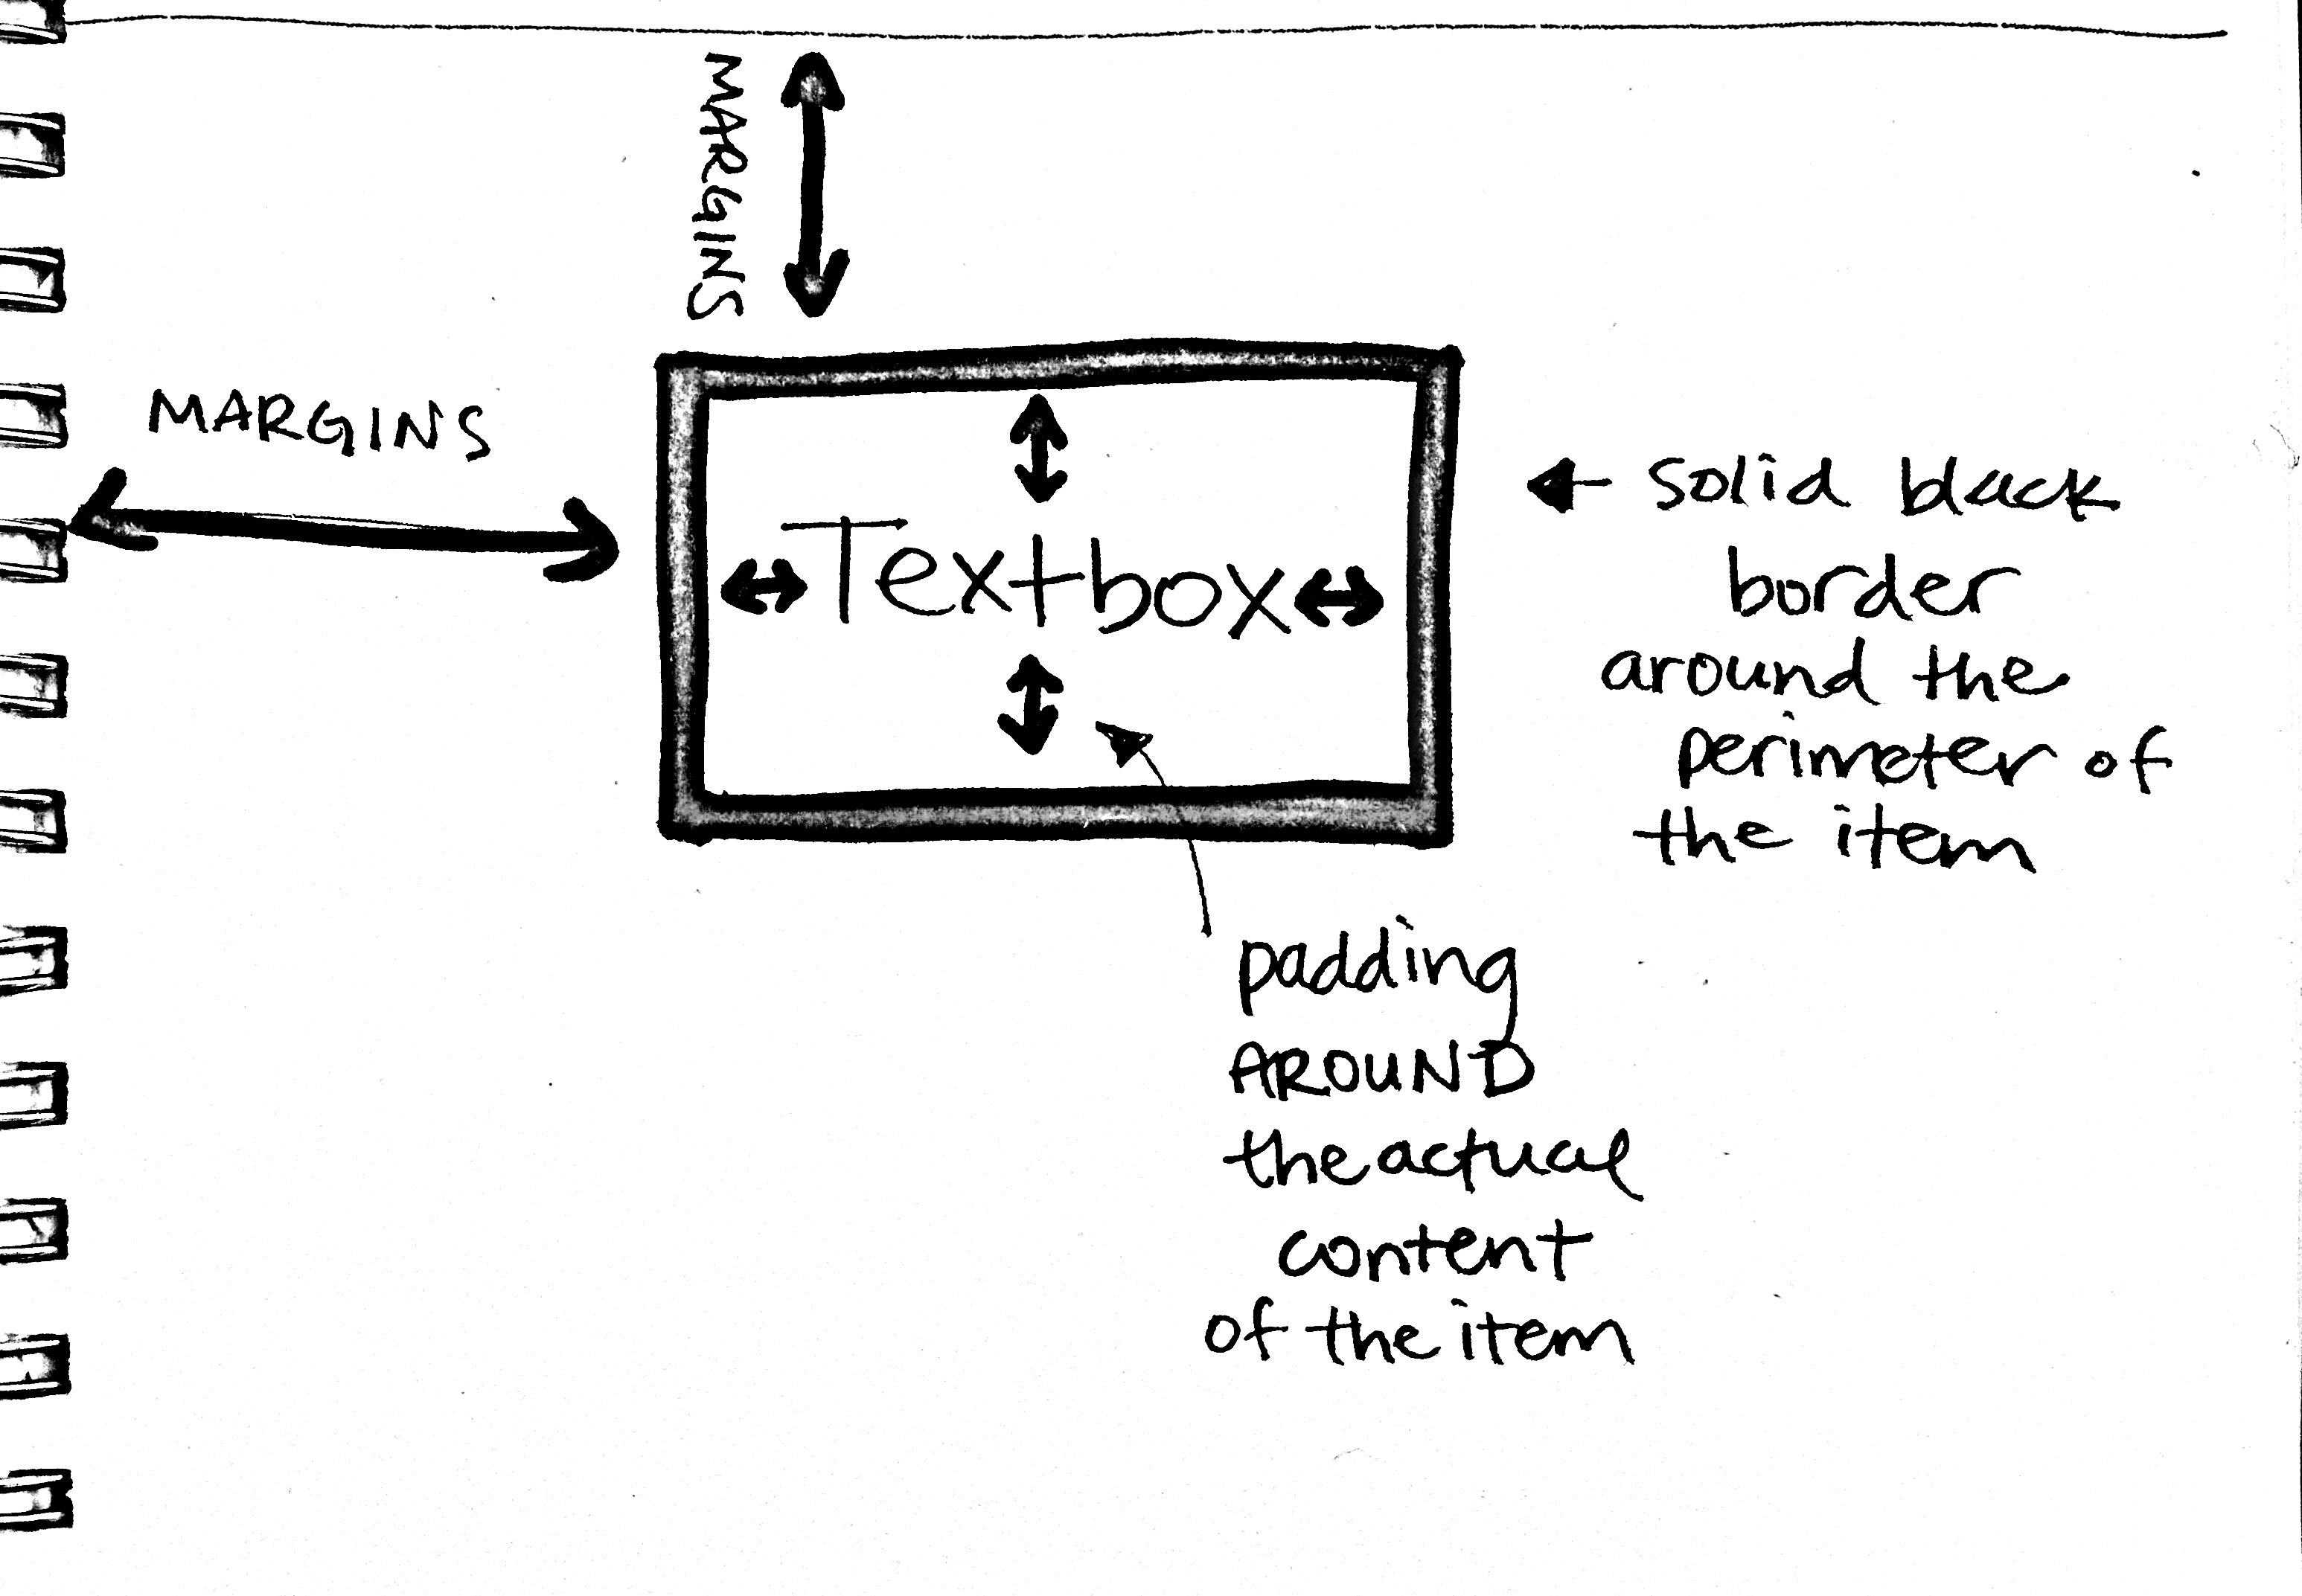 MARGINS
MARGINS
Textbox
solid black
border
around the
perimeter of
the item
padding
AROUND
the actual
content
of the item